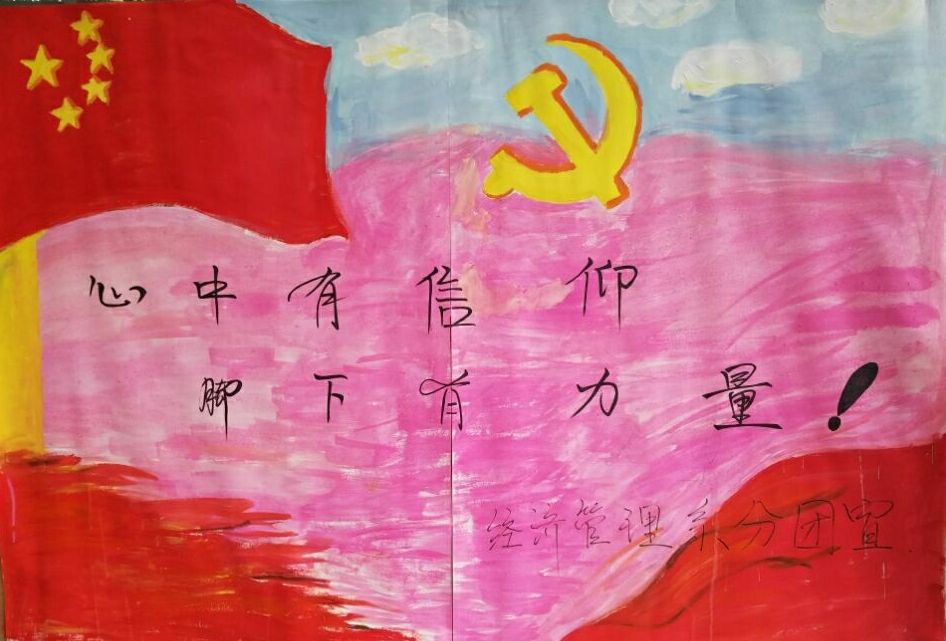 心中有信仰
脚下有力量！
经济管理系分团宣